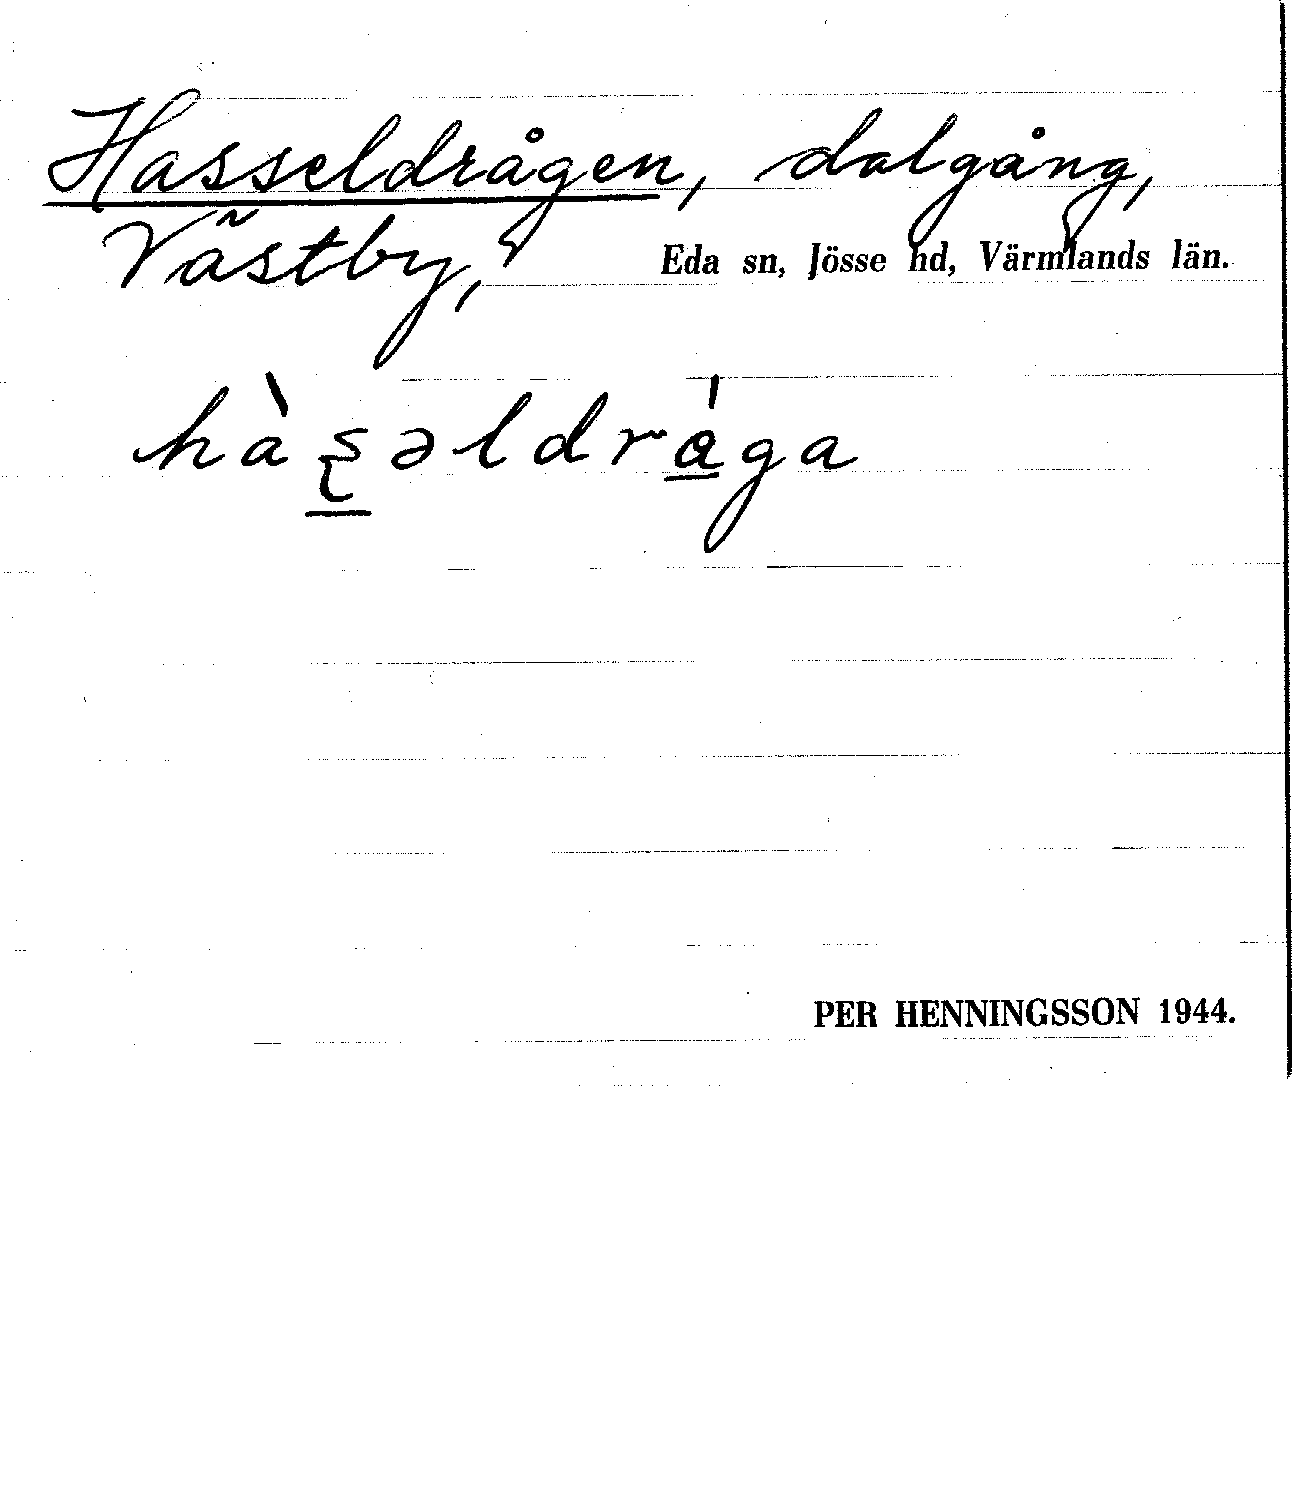 Hasseldrågen, dalgång,
Västby, Eda sn, Jösse hd, Värmlands län.
hàs̱əldrá̱ga
PER HENNINGSSON 1944.